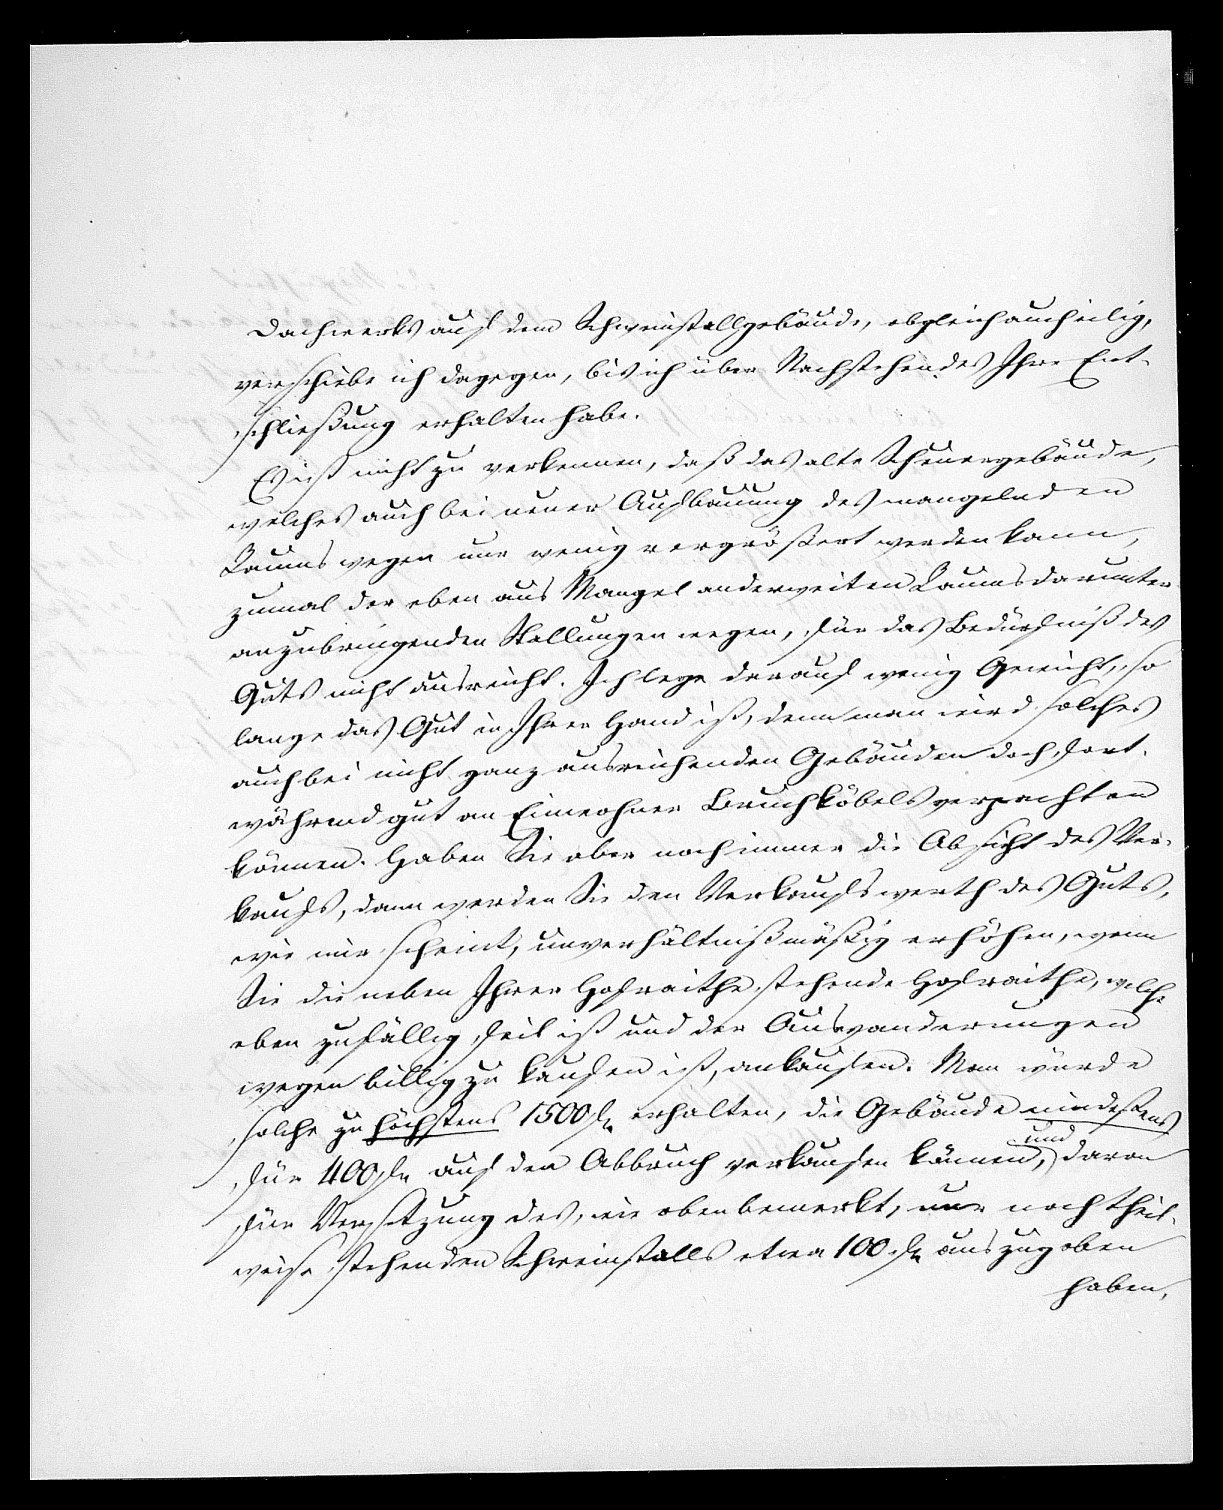 Dachwerks auf dem Schweinstallgebäude, obgleich auch eilig,
verschiebe ich dagegen, bis ich über Nachstehendes Ihre Ent-
schließung erhalten habe.
Es ist nicht zu verkennen, daß das alte Scheuergebäude,
welches auch bei neuer Aufbauung des mangelnden
Raums wegen nur wenig vergrößert werden kann,
zumal der eben aus Mangel anderweiten Raums darunter
anzubringenden Stallungen wegen, für das Bedürfniß des
Guts nicht ausreicht. Ich lege darauf wenig Gewicht, so
lange das Gut in Ihrer Hand ist, denn man wird solches
auch bei nicht ganz ausreichenden Gebäuden doch fort-
während gut an Einwohner Bruchköbels verpachten
können. Haben Sie aber noch immer die Absicht des Ver-
kaufs, dann werden Sie den Verkaufswerth des Guts,
wie mir scheint, unverhältnißmäßig erhöhen, wenn
Sie die neben Ihrer Hofraithe stehende Hofraithe, welche
eben zufällig feil ist und der Auswanderungen
wegen billig zu kaufen ist, ankaufen. Man würde
solche zu höchstens 1500 fl erhalten, die Gebäude mindestens
für 400 fl auf den Abbruch verkaufen können, und davon
für Versetzung des, wie oben bemerkt, nur noch theil-
weise stehenden Schweinstalls etwa 100 fl auszugeben
haben,